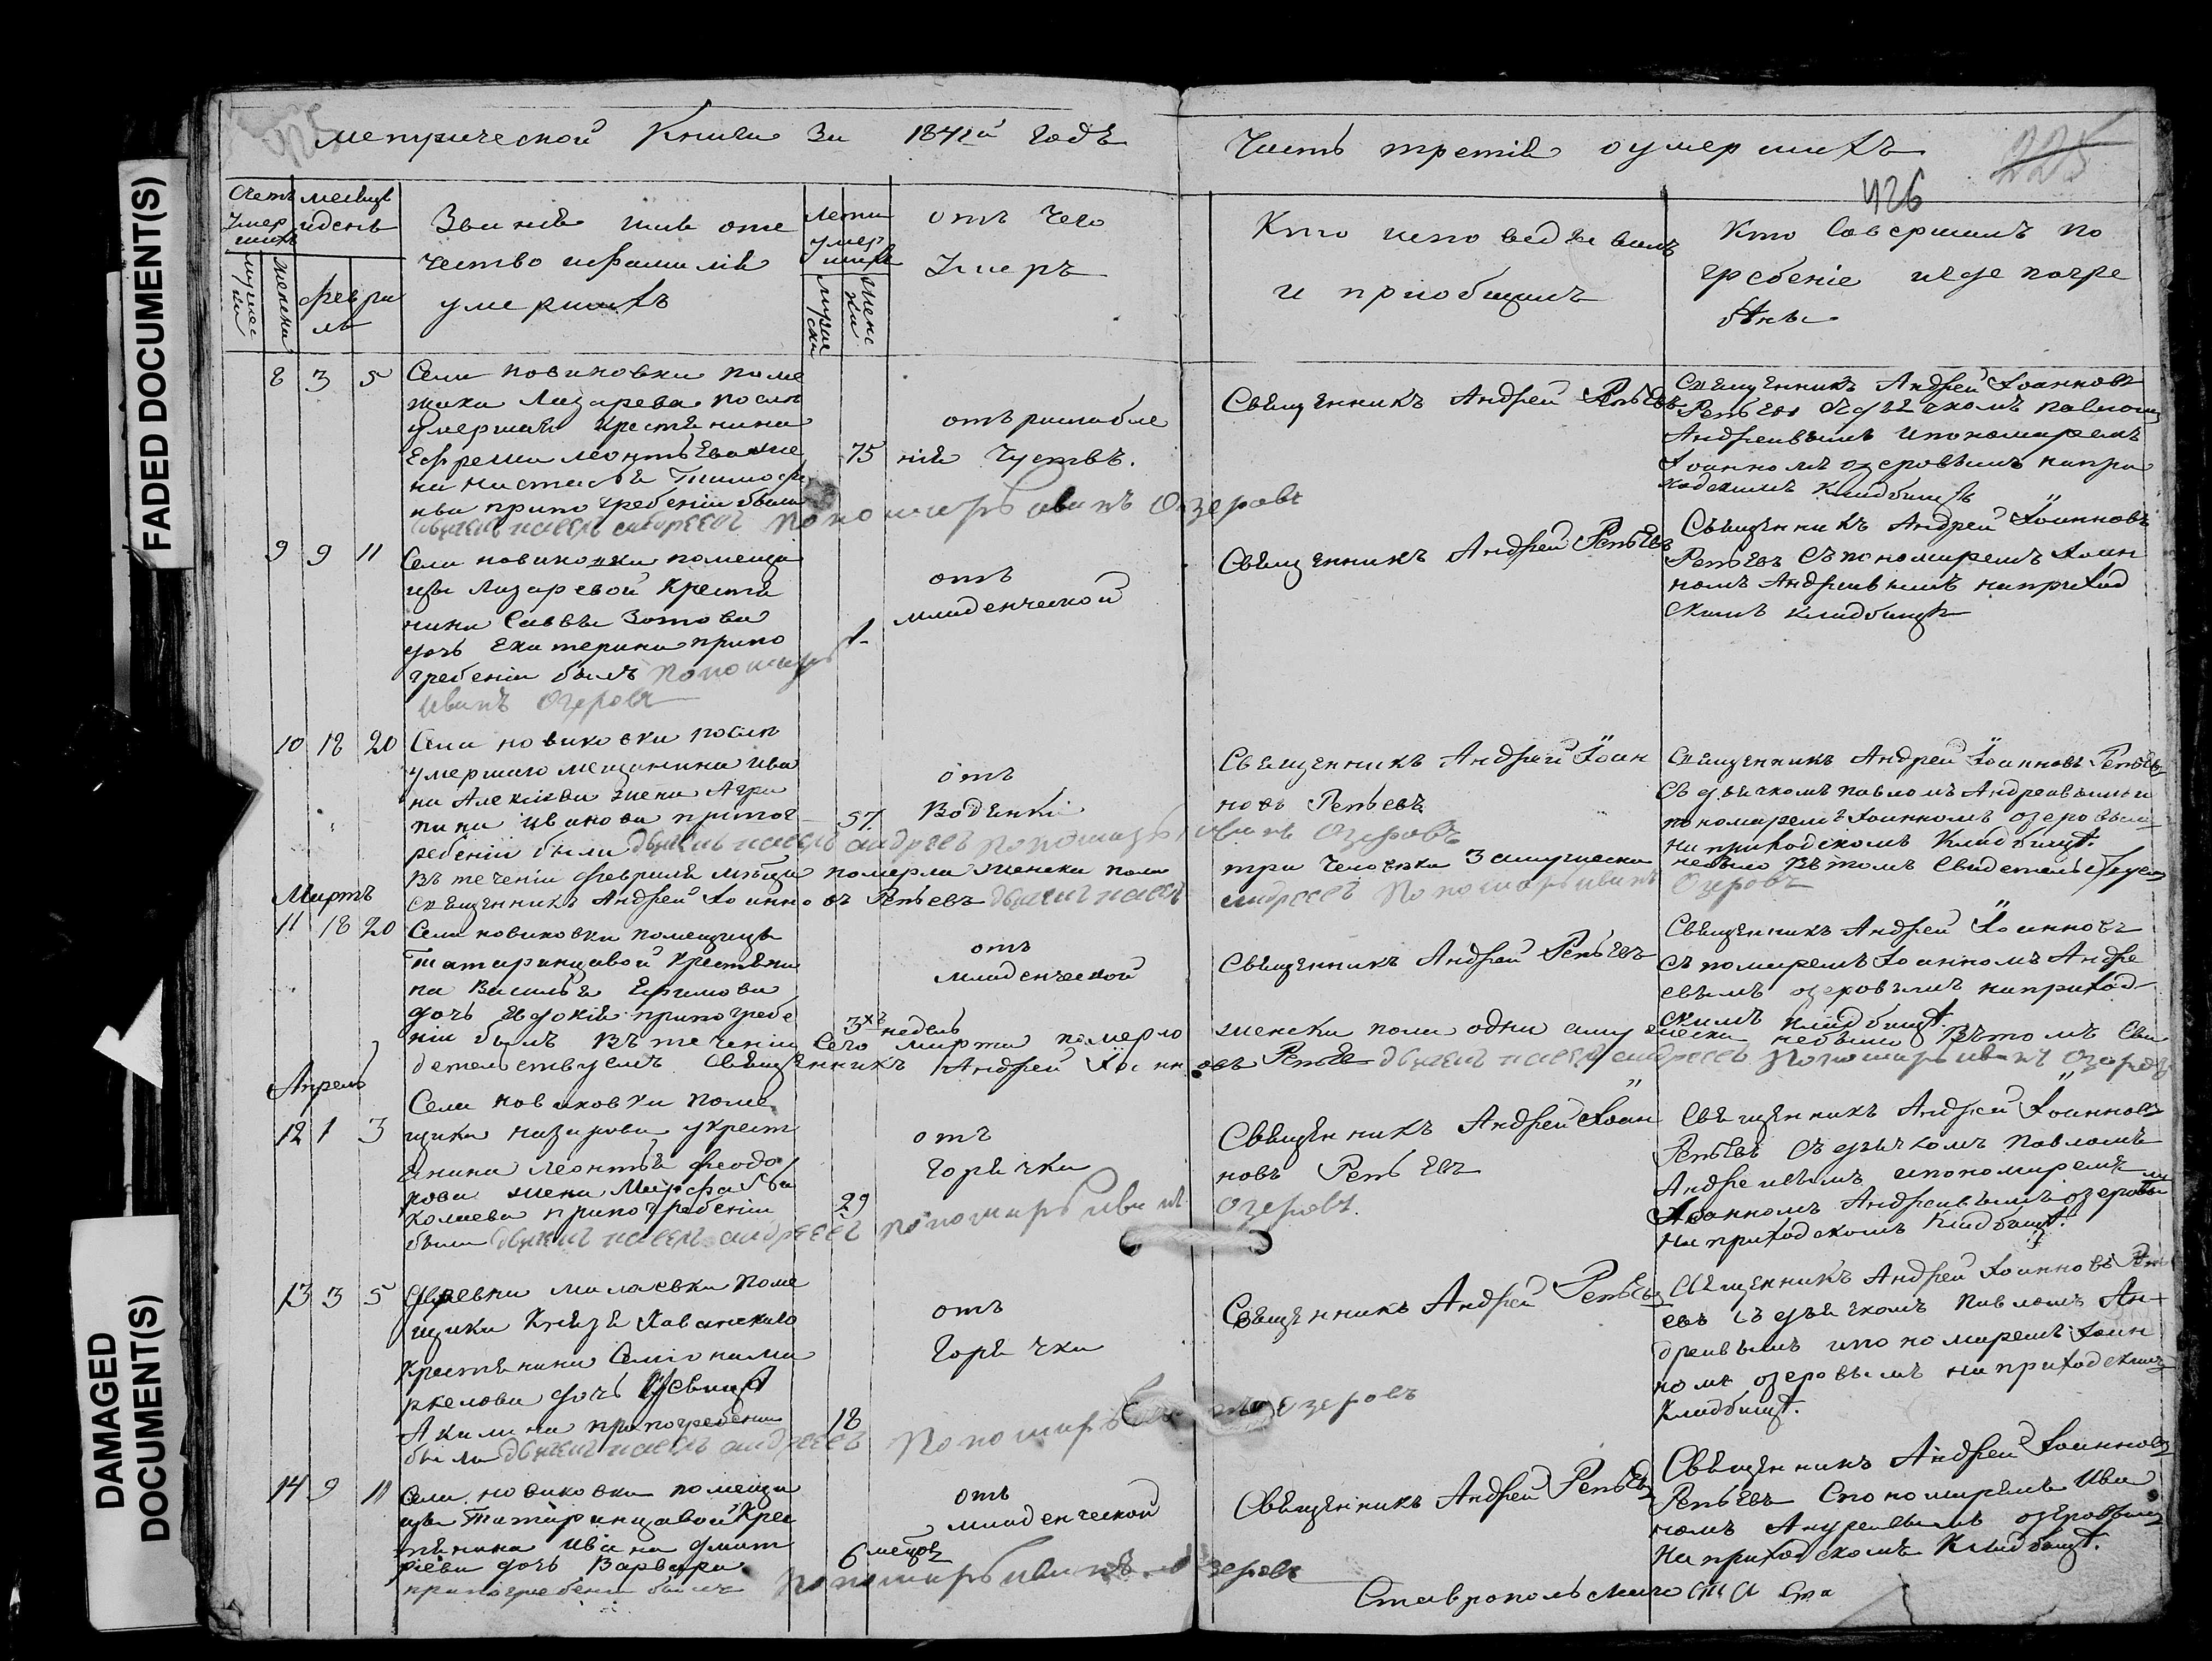 FADED DOCUMENT(S)
DAMAGED
DOCUMENT(S)
метрической Книги За 1842й годъ
Часть третія оумершихъ
426
225
Счетъ умершихъ
месяцъ и день
Званіе имя оте
чество ифамилія
умершихъ
лета умершихъ
отъ чего
Умеръ
Кто исповедывалъ
и приобщилъ
Кто Совершилъ по
гребеніе игде погре
бены
мужески
женски
февраль
мужески
женски
8 3 5 Села новиковки поме
щика Лазарева после
умершаго крестьянина
Ефрема леонтьева же
на настасья Тимофе
ева припогребеніи были
75
отъ разслабле
нія Чуствъ.
дьячекъ павелъ андреевъ пономарь иванъ Озеровъ
Священникъ Андрей Репьевъ
Священникъ Андрей Іоанновъ
Репьевъ съдьячкомъ павломъ
Андреивымъ ипономаремъ
Іоанномъ озеровымъ напри
ходскомъ Кладбищѣ
9 9 11 Села новиковки помещи
цы Лазаревой Крестья
нина Саввы Зотова
дочь Екатерина припо
гребеніи былъ пономарь
иванъ Озеровъ
1
отъ
младенческой
Священникъ Андрей Репьевъ
Священникъ Андрей Іоанновъ
Репьевъ Съпономаремъ Іоан
номъ Андреивымъ наприход
скомъ кладбищѣ
10 18 20 Села новиковки после
умершаго мещанина ива
на Алексіева жена Агри
пина иванова припог
ребеніи были дьячекъ павелъ андреевъ пономарь иванъ Озеровъ
57
отъ
Водянки
Священникъ Андрей Іоан
новъ Репьевъ
Священникъ Андрей Іоанновъ Репьевъ
Съ дьячкомъ павломъ Андреивымъ и
пономаремъ Іоанномъ озеровымъ
на приходскомъ Кладбищѣ.
Въ теченіи февраля мѣсяца померли женска пола три Человѣка Замужески небыло Вътомъ Свидетельствуемъ
Мартъ
Священникъ Андрей Іоанновъ Репьевъ дьячекъ павелъ андреевъ Пономарь иванъ Озеровъ
11 18 20 Села новиковки помещицы
Татаринцавой Крестьяни
на Василья Ефимова
дочь Евдокія припогребе
ніи былъ
3хъ недель
отъ
младенческой
Священникъ Андрей Репьевъ
Священникъ Андрей Іоанновъ
съ помаремъ Іоанномъ Андре
евымъ озеровымъ наприход
скимъ кладбищѣ.
Въ теченіи Сего марта померло женска пола одна амужеска небыло Вътомъ Сви
детельствуемъ Священникъ Андрей Іоанновъ Репьевъ дьячекъ павелъ андреевъ Пономарь иванъ Озеровъ
Апрель
12 1 3 Села новиковки поме
щика назарова укрест
янина леонтья феодо
рова жена Марфа Ни
колаева припогребеніи
были дьячекъ павелъ андреевъ пономарь иванъ Озеровъ
29
отъ
Горячки
Священникъ Андрей Іоан
новъ Репьевъ
Священникъ Андрей Іоанновъ
Репьевъ съ дьячкомъ павломъ
Андреивымъ ипономаремъ
Іоанномъ Андреивымъ озеровымъ
На приходскомъ Кладбищѣ.
13 3 5 Деревни милаевки Поме
щика Князя Хаванскаго
Крестьянина Семіона ма
ркелова дочь девица
Акилина припогребеніи
были дьячекъ павелъ андреевъ Пономарь иванъ озеровъ
18
отъ
Горячки
Священникъ Андрей Репьевъ
Священникъ Андрей Іоанновъ Репь
евъ Съ дьячкомъ Павломъ Ан
дреивымъ ипономаремъ Іоан
номъ озеровымъ на приходскимъ
Кладбищѣ.
14 9 11 Села новиковки помещи
цы Татаринцавой Крес
тьянина Ивана дмит
ріева дочь Варвара
припогребеніи былъ пономарь иванъ Озеровъ
6 месцовъ
отъ
младенческой
Священникъ Андрей Репьевъ
Священникъ Андрей Іоанновъ
Репьевъ Спономаремъ Ива
номъ Андреевымъ озеровымъ
На приходскомъ Кладбищѣ.
Ставропольскаго